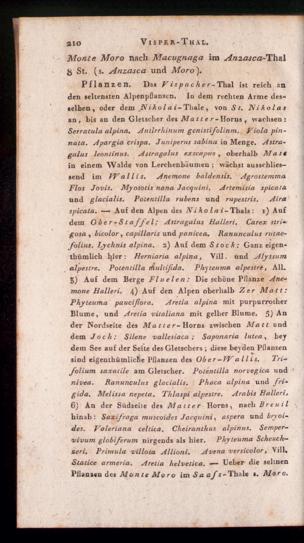 210 VISPER-THAL.
Monte Moro nach Macugnaga im Anzasca-Thal
8 St. (s. Anzasca und Moro).
Pflanzen. Das Vispacher-Thal ist reich an
den seltensten Alpenpflanzen. In dem rechten Arme des-
selben, oder dem Nikolai-Thale, von St. Nikolas
an, bis an den Gletscher des Matter-Horns, wachsen:
Serratula alpina. Antirrhinum genistifolium. Viola pin-
nata. Apargia crispa. Juniperus sabina in Menge. Astra-
galus leontinus. Astragalus exscapus, oberhalb Mase
in einem Walde von Lerchenbäumen; wächst ausschlies-
send im Wallis. Anemone baldensis. Agrostemma
Flos Jovis. Myosotis nana Jacquini. Artemisia spicata
und glacialis. Potentilla rubens und rupestris. Aira
spicata. — Auf den Alpen des Nikolai-Thals: 1) Auf
dem Ober-Staffel: Astragalus Halleri. Carex stri-
gosa, bicolor, capillaris und panicea. Ranunculus rutae-
folius. Lychnis alpina. 2) Auf dem Stock: Ganz eigen-
thümlich hier: Herniaria alpina, Vill. und Alyssum
alpestre. Potentilla multifida. Phyteuma alpestre, All.
3) Auf dem Berge Fluelen: Die schöne Pflanze Ane-
mone Halleri. 4) Auf den Alpen oberhalb Zer Matt:
Phyteuma pauciflora. Aretia alpina mit purpurrother
Blume, und Aretia vitaliana mit gelber Blume. 5) An
der Nordseite des Matter-Horns zwischen Matt und
dem Joch: Silene vallesiaca; Saponaria lutea, bey
dem See auf der Seite des Gletschers; diese beyden Pflanzen
sind eigenthümliche Pflanzen des Ober-Wallis. Tri-
folium saxatile am Gletscher. Potentilla norvegica und
nivea. Ranunculus glacialis. Phaca alpina und fri-
gida. Melissa nepeta. Thlaspi alpestre. Arabis Halleri.
6) An der Südseite des Matter-Horns, nach Breuil
hinab: Saxifraga muscoides Jacquini, aspera und bryoi-
des. Valeriana celtica. Cheiranthus alpinus. Semper-
vivum globiferum nirgends als hier. Phyteuma Scheuch-
zeri. Primula villosa Allioni. Avena versicolor, Vill.
Statice armeria. Aretia helvetica. — Ueber die seltnen
Pflanzen des Monte Moro im Saass-Thale s. Moro.